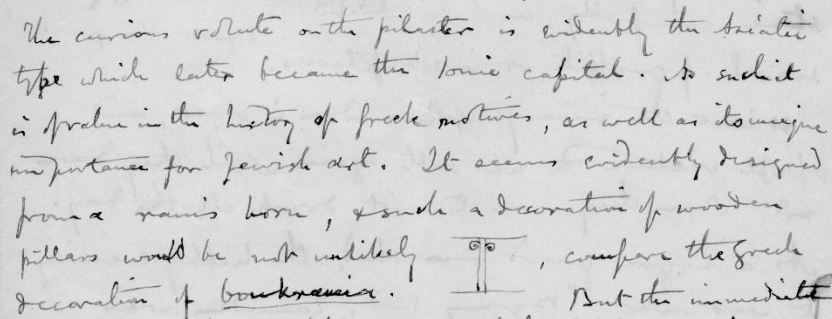 The curious volute on the pilaster is evidently the Asiatic
type which later became the Ionic capital. As such it
is of value in the history of Greek motives, as well as its unique
importance for Jewish art. It seems evidently designed
from a ram's horn, & such a decoration of wooden
pillars would be not unlikely , compare the Greek
decoration of boukrania. But the immediate